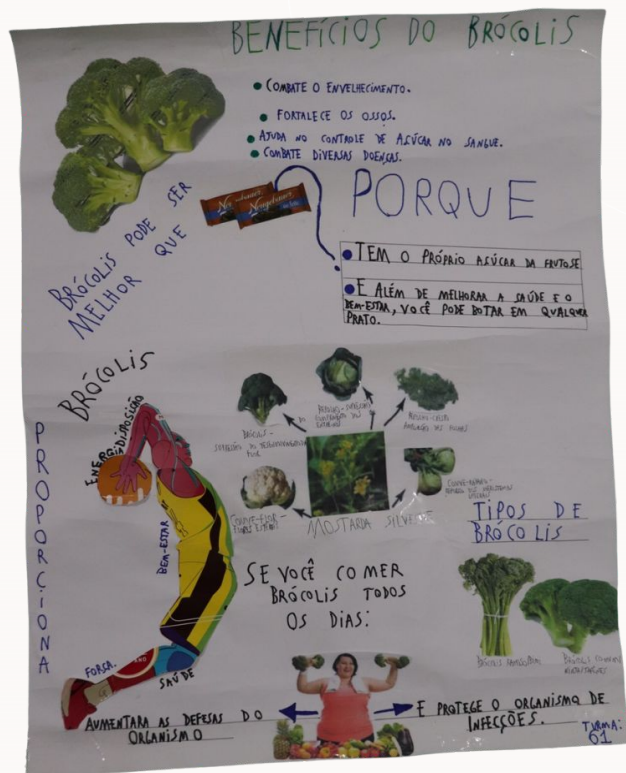 BENEFÍCIOS DO BRÓCOLIS
• COMBATE O ENVELHECIMENTO.
• FORTALECE OS OSSOS.
• AJUDA NO CONTROLE DE ASÚCAR NO SANGUE.
• COMBATE DIVERSAS DOENSAS.
BRÓCOLIS PODE SER
MELHOR QUE
PORQUE
• TEM O PRÓPRIO ASÚCAR DA FRUTOSE
• E ALÉM DE MELHORAR A SAÚDE E O
BEM-ESTAR, VOCÊ PODE BOTAR EM QUALQUER
PRATO.
BRÓCOLIS
PROPORÇIONA
ENERGIA
DISPOSIÇÃO
BEM-ESTAR
FORSA.
SAÚDE
BRÓCOLIS -
COUVE-FLOR -
MOSTARDA SILVESTRE
TIPOS DE
BRÓCOLIS
SE VOCÊ COMER
BRÓCOLIS TODOS
OS DIAS:
AUMENTARA AS DEFESAS DO
ORGANISMO
E PROTEGE O ORGANISMO DE
INFECÇÕES.
TURMA:
61